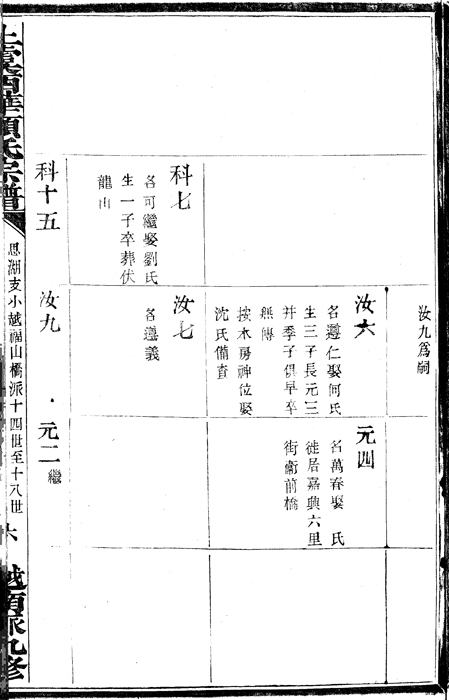 汝九爲嗣
汝六
名遵仁娶何氏
生三子長元三
并季子俱早卒
無傳
按木房神位娶
沈氏備查
元四
名萬春娶 氏
徙居嘉興六里
街衢前橋
科七
名可繼娶劉氏
生一子卒葬伏
龍山
汝七
名遵義
科十五
汝九
元二 繼
上虞西華顧氏宗譜
思湖支小越福山橋派十四世至十八世
六
越顧派九修